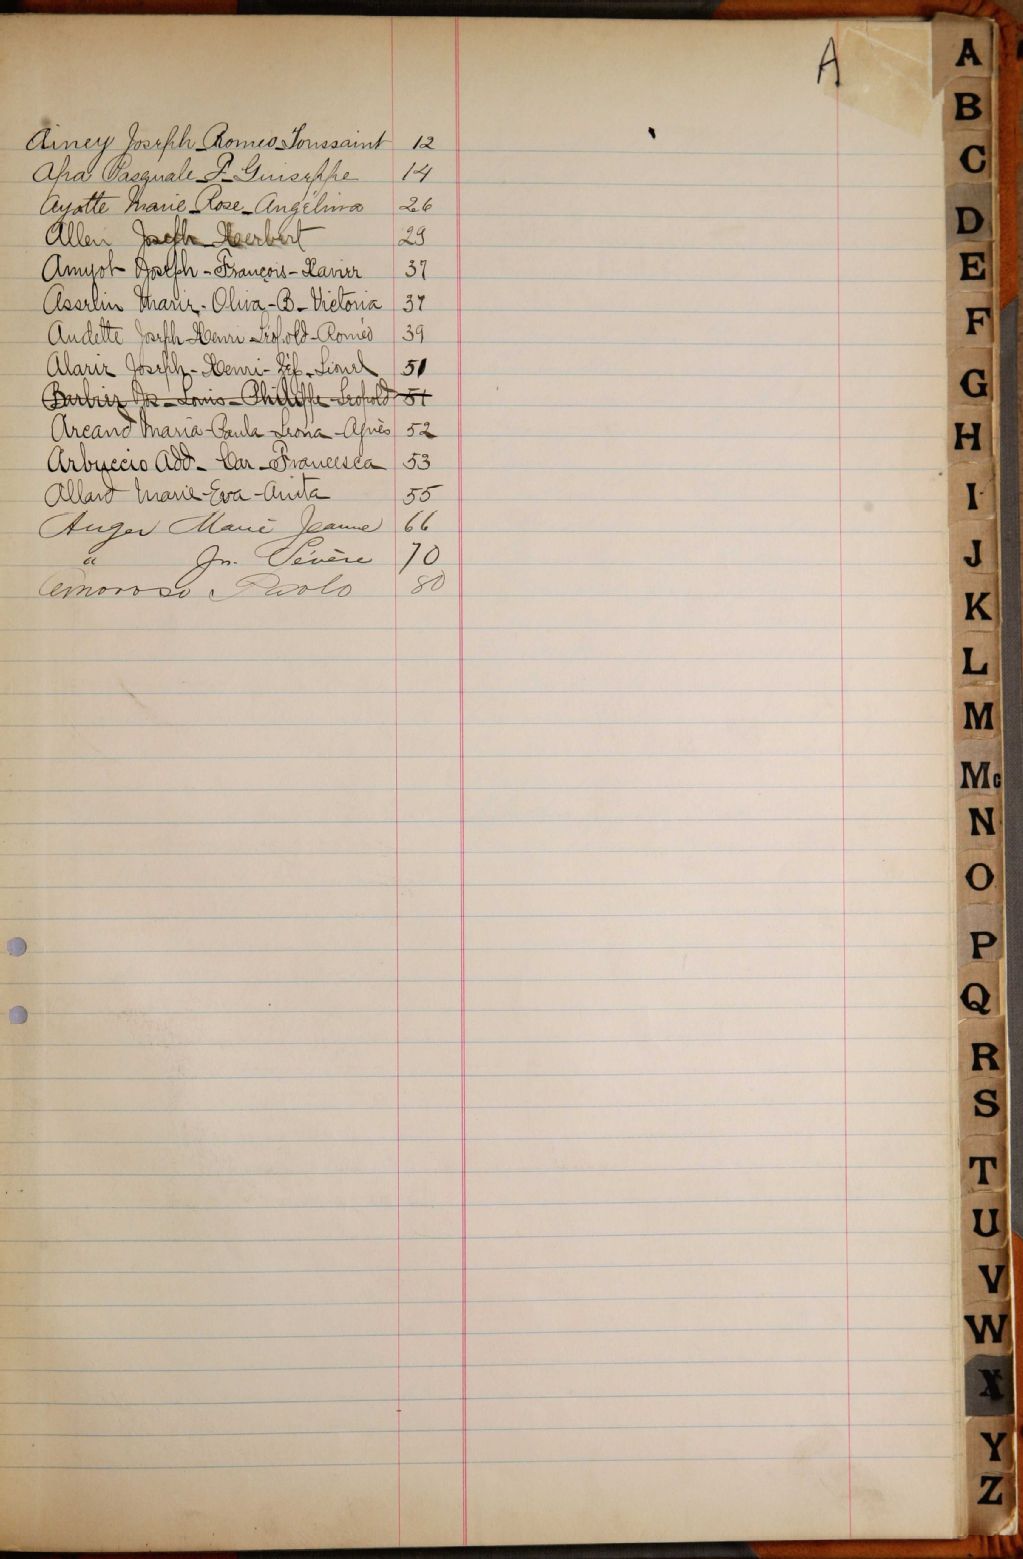 A
Ainey Joseph-Romeo-Toussaint 12
Apa Pasquale-F-Guiseppe 14
Ayotte Marie-Rose-Angélina 26
Allen Joseph-Herbert 29
Amyot Joseph-François-Xavier 37
Asselin Marie-Oliva-B-Victoria 37
Audette Joseph-Henri-Léopold-Roméo 39
Alarie Joseph-Henri-Zéf-Lionel 51
Barbier Jos-Louis-Philippe-Léopold 51
Arcand Maria-Paula-Leona-Agnès 52
Arbuccio Add-Car-Francesca 53
Allard Marie-Eva-Anita 55
Auger Marie Jeanne 66
" Jn. Sévère 70
Amoroso Paolo 80
A
B
C
D
E
F
G
H
I
J
K
L
M
Mc
N
O
P
Q
R
S
T
U
V
W
X
Y
Z